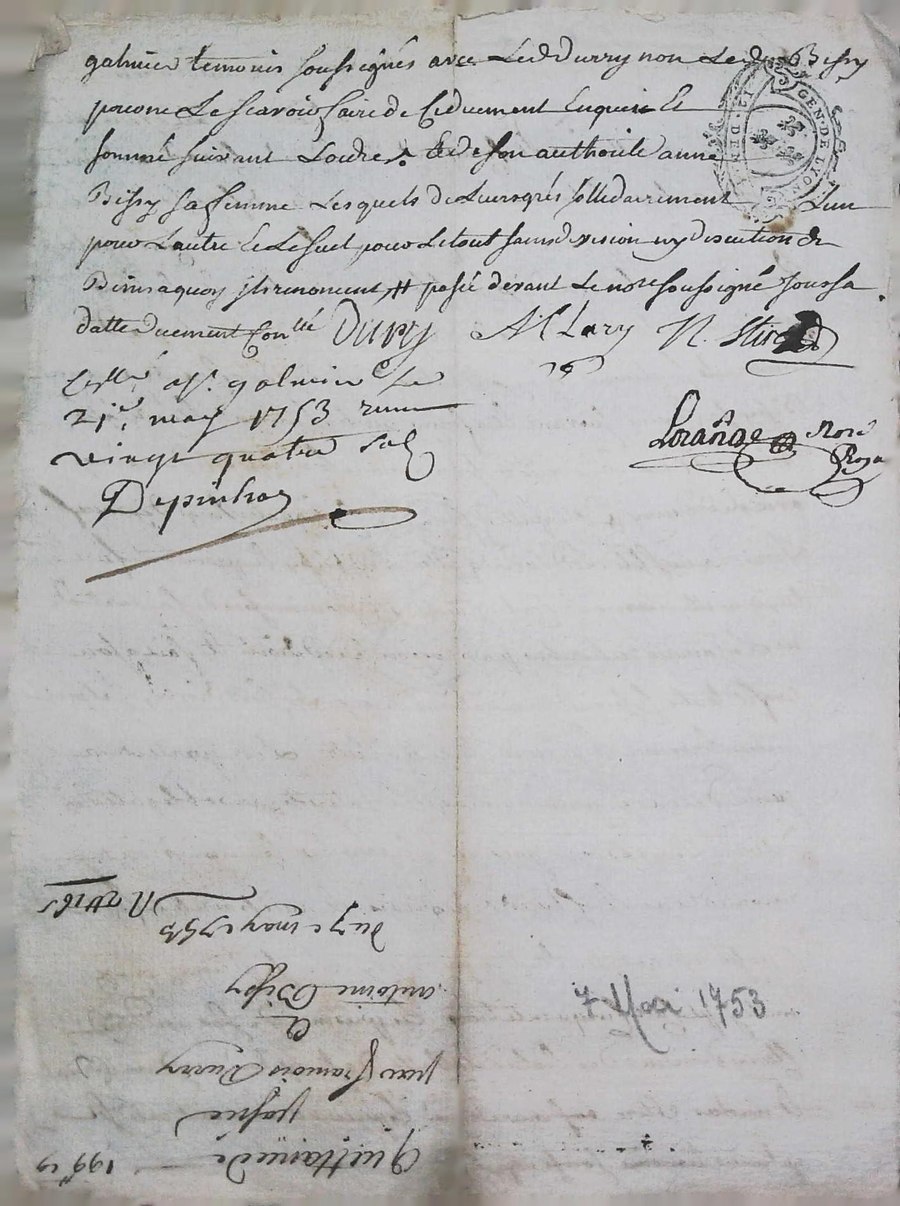 galmier temoins soussignés avec Led Durry non Led Bissy
pour ne Le scavoir faire de ce duement Enquis Et
sommé suivant Lordre. Et de son authorité anne
Bissy sa femme Lesquels de Leurs grés sollidairement Lun
pour Lautre Et Le seul pour Le tout sans division ny discution de
Biens a quoy ils renoncent # passée devant Le nore soussigné sous sa
datte duement Conllé Durry
GEN·DE LYON
Cllé a St galmier le
21e may 1753 reçu
vingt quatre sols
Lorange Noré
Royal
7 Mai 1753
Quittance de
199 15
passée
par françois Durry
a
antoine Bissy
du 7e may 1753